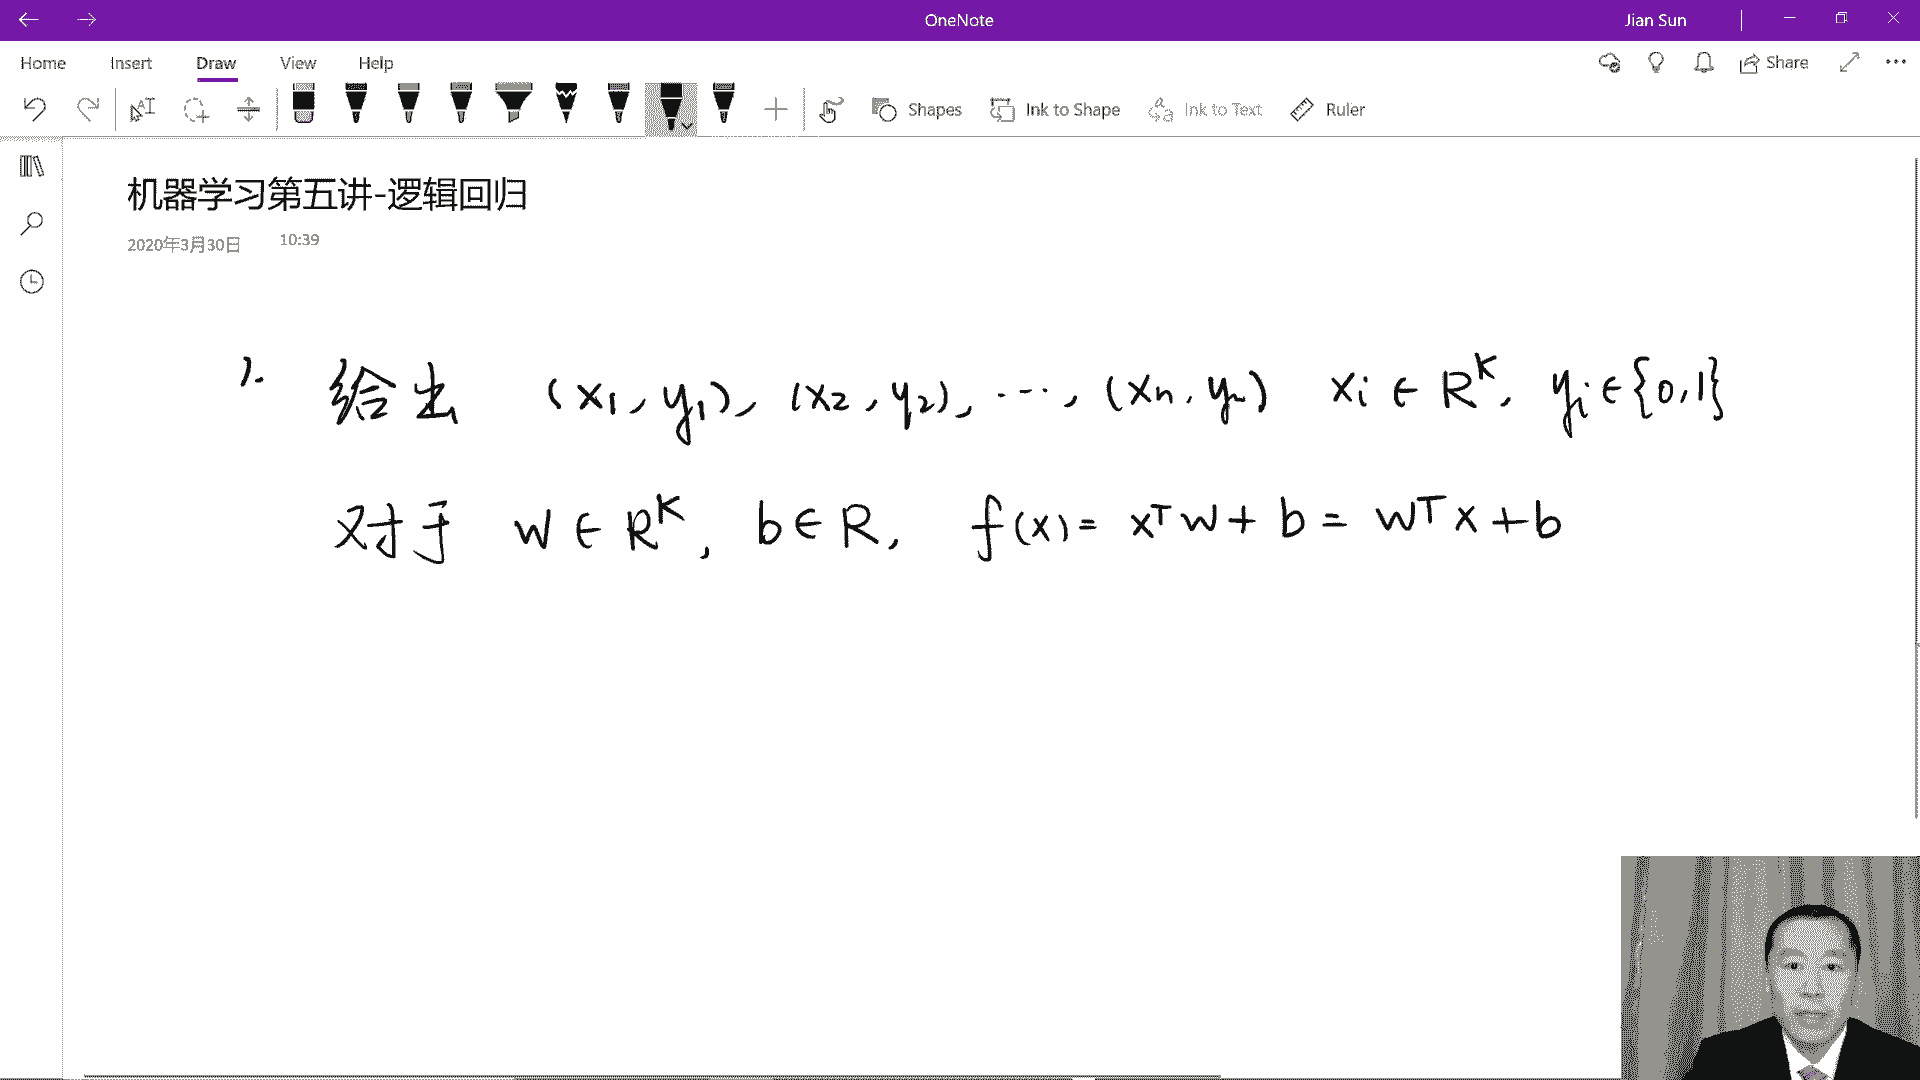 OneNote
Jian Sun
Home Insert Draw View Help
Share
Shapes Ink to Shape Ink to Text Ruler
机器学习第五讲-逻辑回归
2020年3月30日 10:39
1. 给出 (x₁, y₁), (x₂, y₂), ⋯, (xₙ, yₙ) xᵢ ∈ Rᴷ, yᵢ ∈ {0,1}
对于 w ∈ Rᴷ, b ∈ R, f(x) = xᵀw + b = wᵀx + b